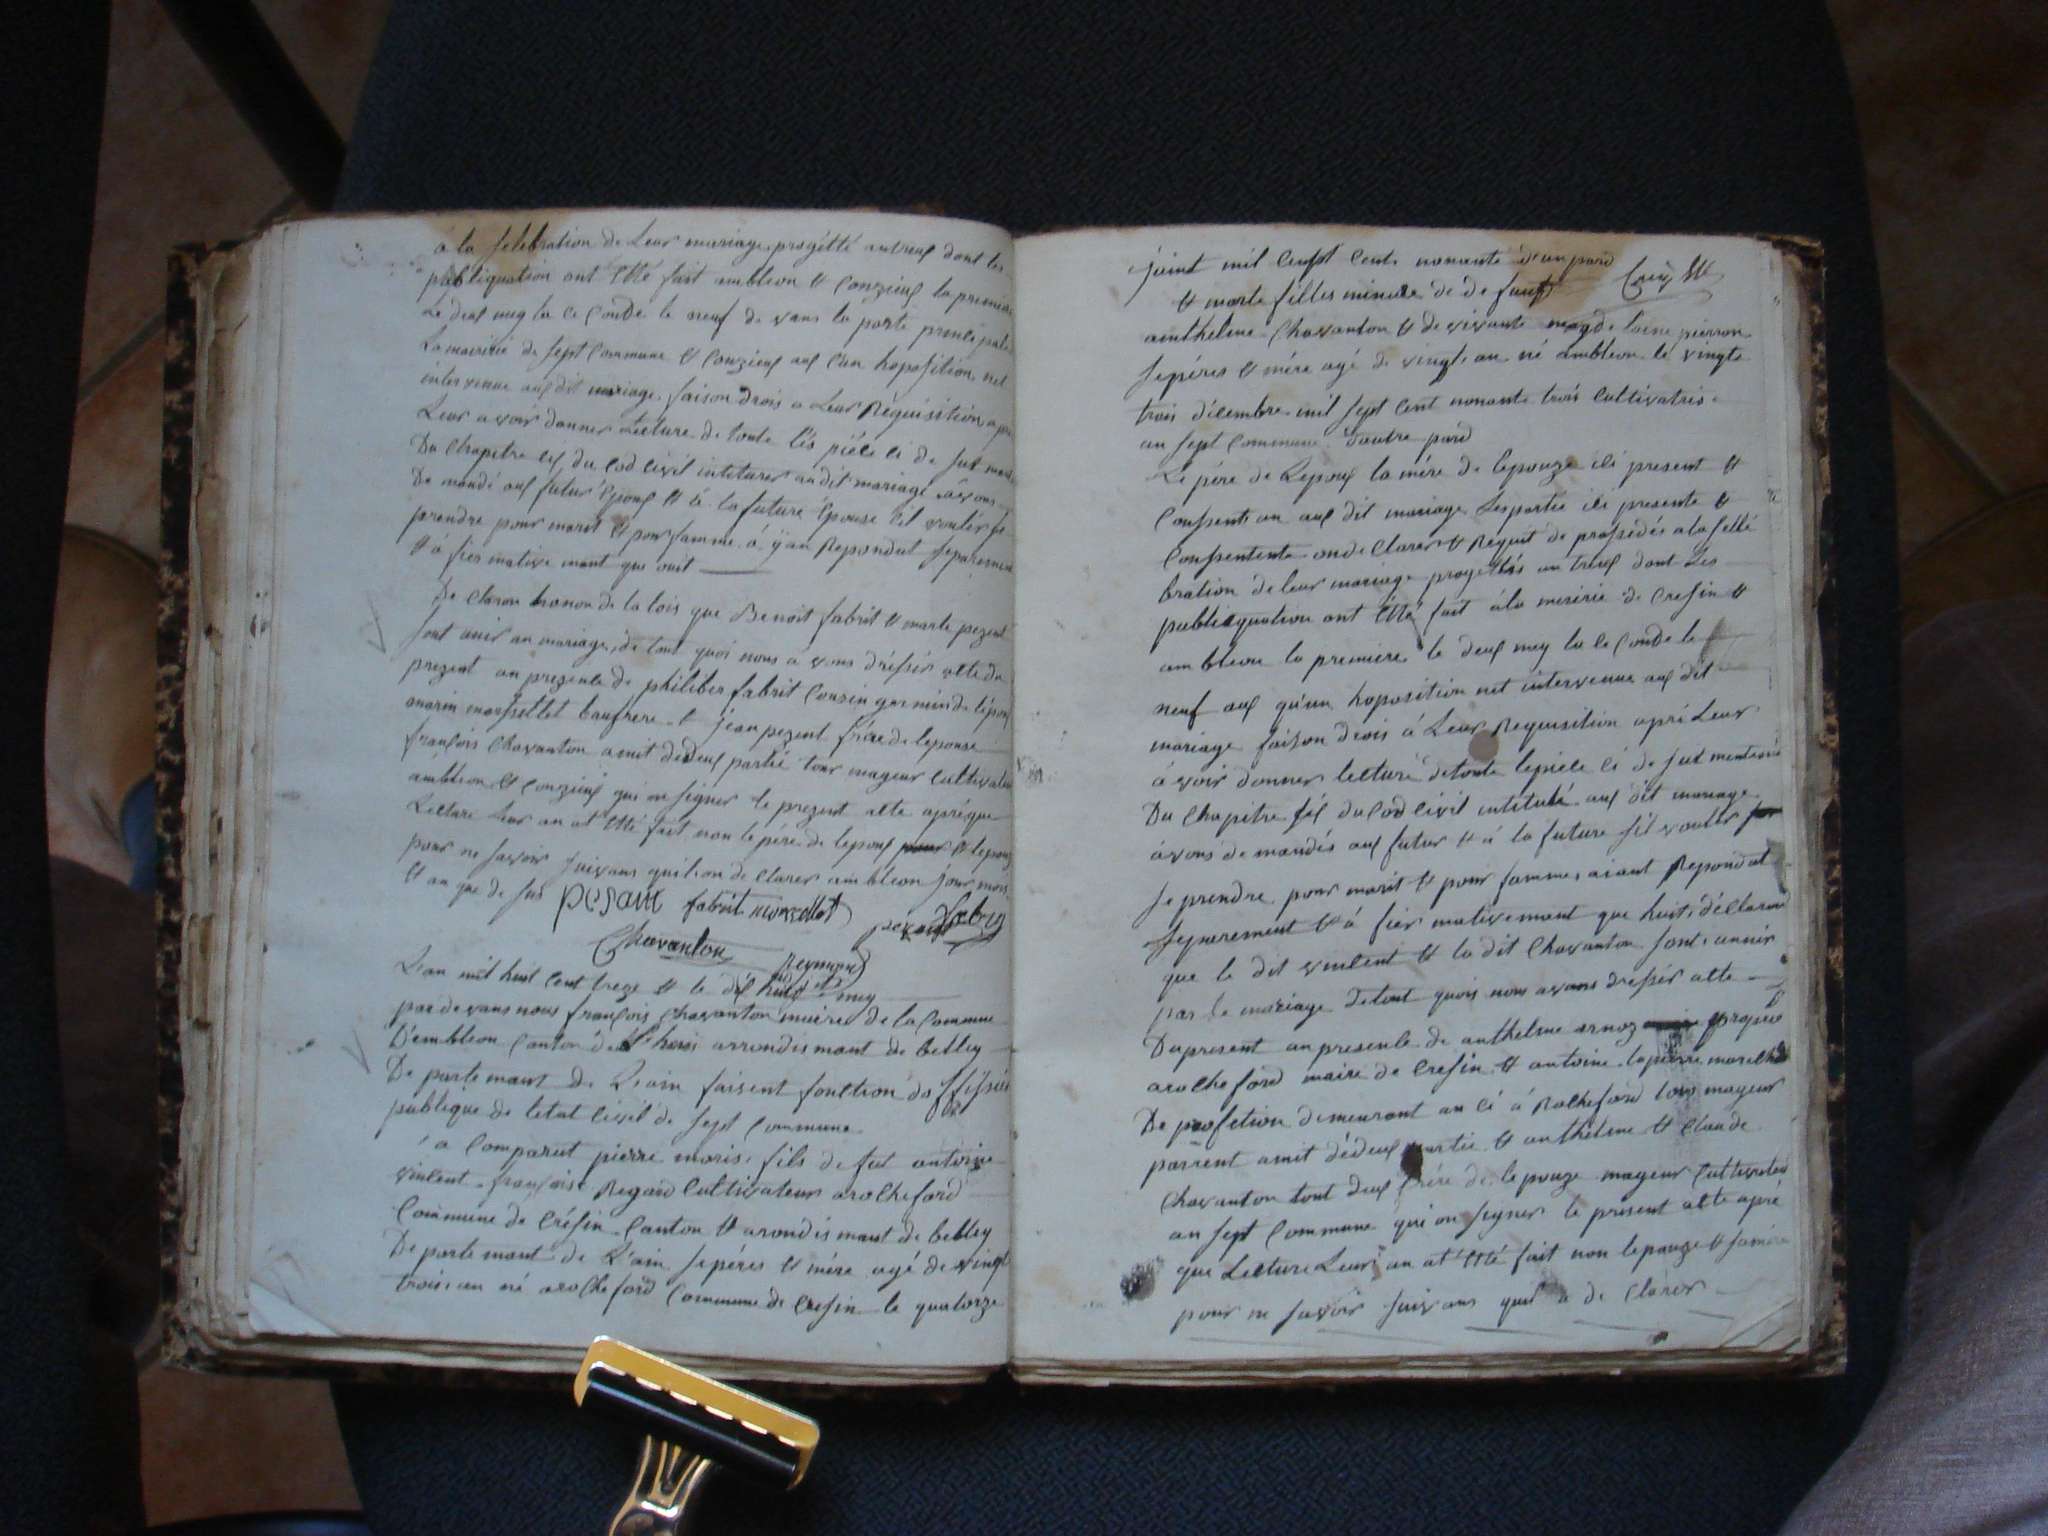 à la selebration de Leur mariage progétté antreux dont les
publiquation ont Etté fait ambleon et Conzieux la premiere
Le deux mey la ce Conde le neuf de vans la porte prinsé pale
La mairie de sept Commune et Conzieux aux Cun hoposition net
intervenue aux dit mariage faison drois a Leur Réquisition apre
Leur avoir donner Lecture de toute lés piéce ci de sus mant
Du Chapitre six du Cod Civil intituler audit mariage avons
De mandé aux futur Epoux et à la future Epouse sil vouler se
prendre pour marit et pour famme à yan Repondut séparemen
et à fier mative mant que ouit
De Claron hanon de la lois que Benoit fabrit et marte pezent
sont unir an mariage de tout quoi nous a vons drésser atte du
prezent an prezence de philiber fabrit Cousin germin de lépoux
marin morssellet baufrere et jean pezent frére de lepouse
françois Chavanton amit dedeux partié tous mageur Cultivateur
ambleon et Conzieux qui on signer le prezent atte aprés que
Lecture Leur an at Etté fait non le pére de lepoux et lepouz
pour ne savoir suivans quil on de Clarer ambleon jour mois
et an que de sus pesant fabrit morssellet pezant fabry
Chavanton Reymond
L'an mil huit Cent treze et le dix huit mey
par devans nous françois Chavanton maire de la Commune
D'embleon Canton de arrondismant de belley
De partemant de L'ain faisent fonction
publique de letat Civil de sept Commune
a Comparut pierre moris fils de fut antoine
vincent françoise Regard Cultivateur arocheford
Commune de Crésin Canton et arondismant de belley
De partemant de L'ain se péres et mére agé de vingt
trois an né arocheford Commune de Cresin le quatorze
joint mil cent nonante d'un pard
et marte filles mineure de de funt
anthelme Chavanton et de vivante pierron
se péres et mére agé de vingt an né ambleon le vingte
trois décembre mil sept Cent nonante trois Cultivatris
an sept Commune dautre pard
Le pére de Lepoux la mére de lepouze ici present et
Consent an aux dit mariage Les partie ici presente et
Consentente on de Clarer et Requit de prossédés a la sellé
bration de leur mariage progettés an treux dont Les
publiquation ont Etté fait à la meririe de Cresin et
ambleon la premiere le deux mey la ce Conde le
neuf aux qu'un hoposition net intervenue aux dit
mariage faison drois à Leur Requisition apré Leur
à voir donner lecture de toute lepiéce ci de sus mentioné
Du Chapitre six du Cod Civil intitulé aux dit mariage
avons de mandés aux futur et à la future sil vouler
se prendre pour marit et pour famme aiant Repondut
séparement et à fier mativemant que huit déclaron
que le dit vincent et la dit Chavanton sont unnir
par le mariage de tout quois nous avons dresser atte
Du present an presence de anthelme arnoz
arocheford maire de Cresin et antoine
De profetion demeurant an ci à Rocheford tous mageur
parrent amit dédeux partie et anthelme et Claude
Chavanton tout deux frére de lepouze mageur Cultivateur
an sept Commune qui on signer le présent atte apré
que Lecture Leur an at Etté fait non lepouze et samére
pour ne savoir suivans quil a de Clarer